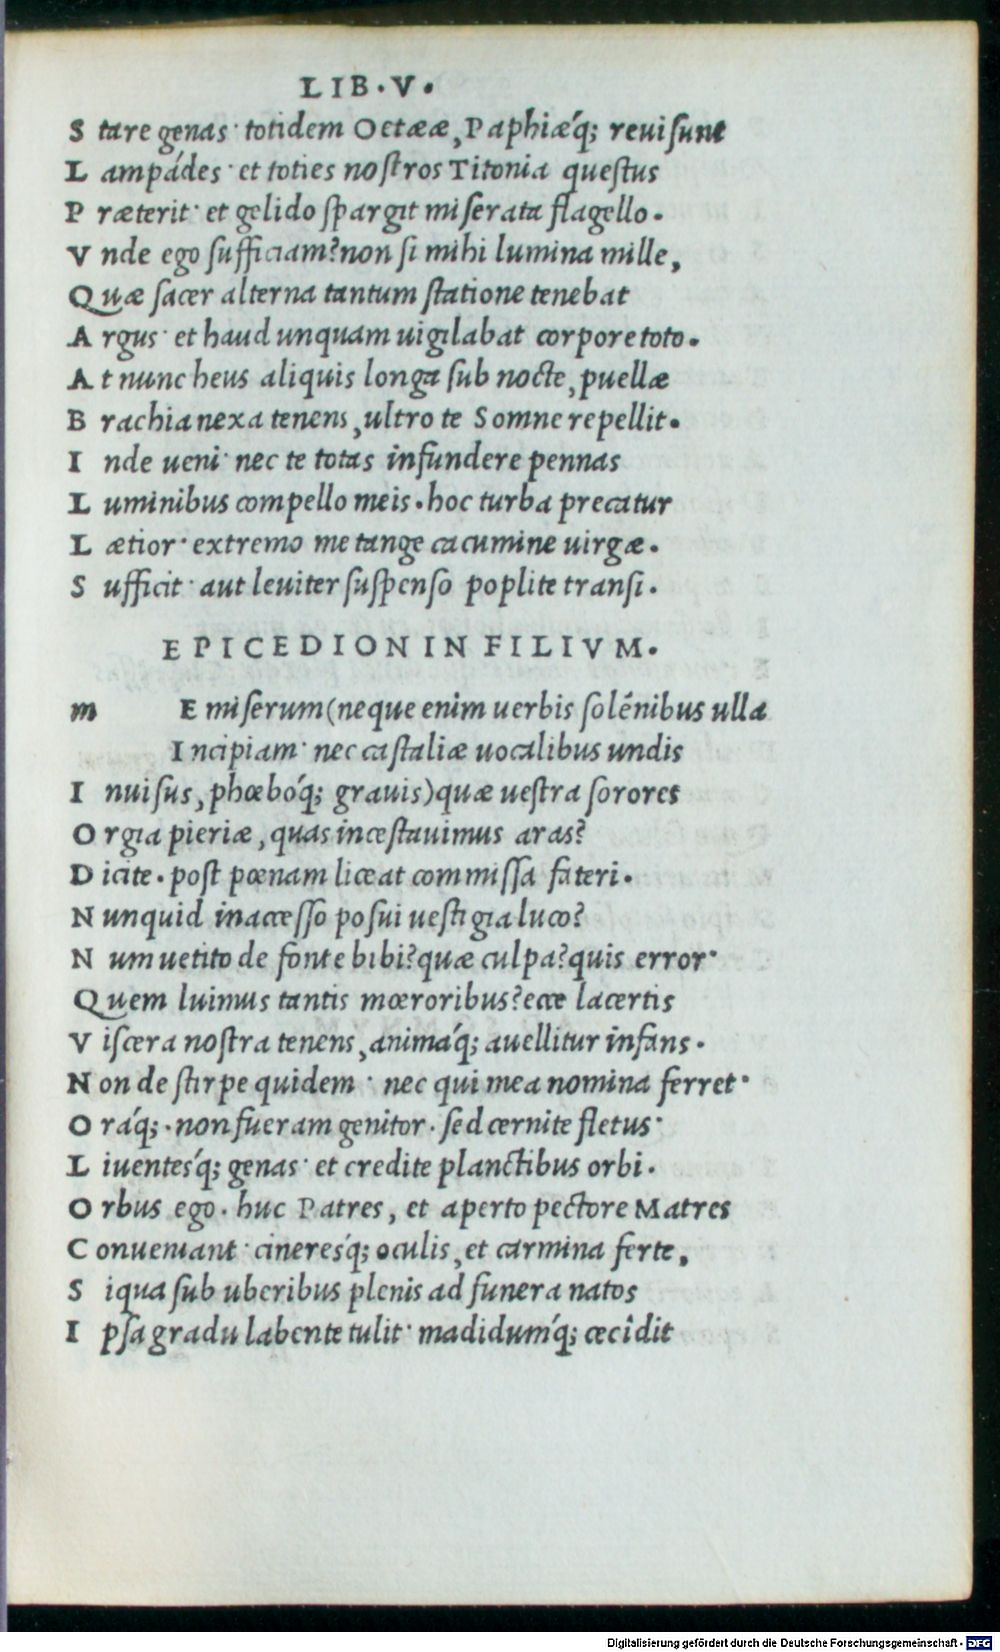 LIB.V.
S tare genas· totidem Oetææ, Paphiæ´q; reuisunt
L ampádes· et toties nostros Titonia questus
P ræterit· et gelido spargit miserata flagello.
V nde ego sufficiam? non si mihi lumina mille,
Quæ sacer alterna tantum statione tenebat
A rgus· et haud unquam uigilabat corpore toto.
A t nunc heus aliquis longa sub nocte, puellæ
B rachia nexa tenens, ultro te Somne repellit.
I nde ueni· nec te totas infundere pennas
L uminibus compello meis. hoc turba precatur
L ætior· extremo me tange cacumine uirgæ.
S ufficit· aut leuiter suspenso poplite transi.
EPICEDION IN FILIVM.
m E miserum (neque enim uerbis solénibus ulla
I ncipiam· nec castaliæ uocalibus undis
I nuisus, phœbóq; grauis) quæ uestra sorores
O rgia pieriæ, quas incestauimus aras?
D icite. post pœnam liceat commissa fateri.
N unquid inaccesso posui uestigia luco?
N um uetito de fonte bibi? quæ culpa? quis error·
Quem luimus tantis mœroribus? ecce lacertis
V iscera nostra tenens, animáq; auellitur infans.
N on de stirpe quidem· nec qui mea nomina ferret·
O ráq;. non fueram genitor. sed cernite fletus·
L iuentesq́; genas· et credite planctibus orbi.
O rbus ego. huc Patres, et aperto pectore Matres
C onueniant· cineresq́; oculis, et carmina ferte,
S iqua sub uberibus plenis ad funera natos
I psa gradu labente tulit· madidumq́; cecîdit
Digitalisierung gefördert durch die Deutsche Forschungsgemeinschaft - DFG